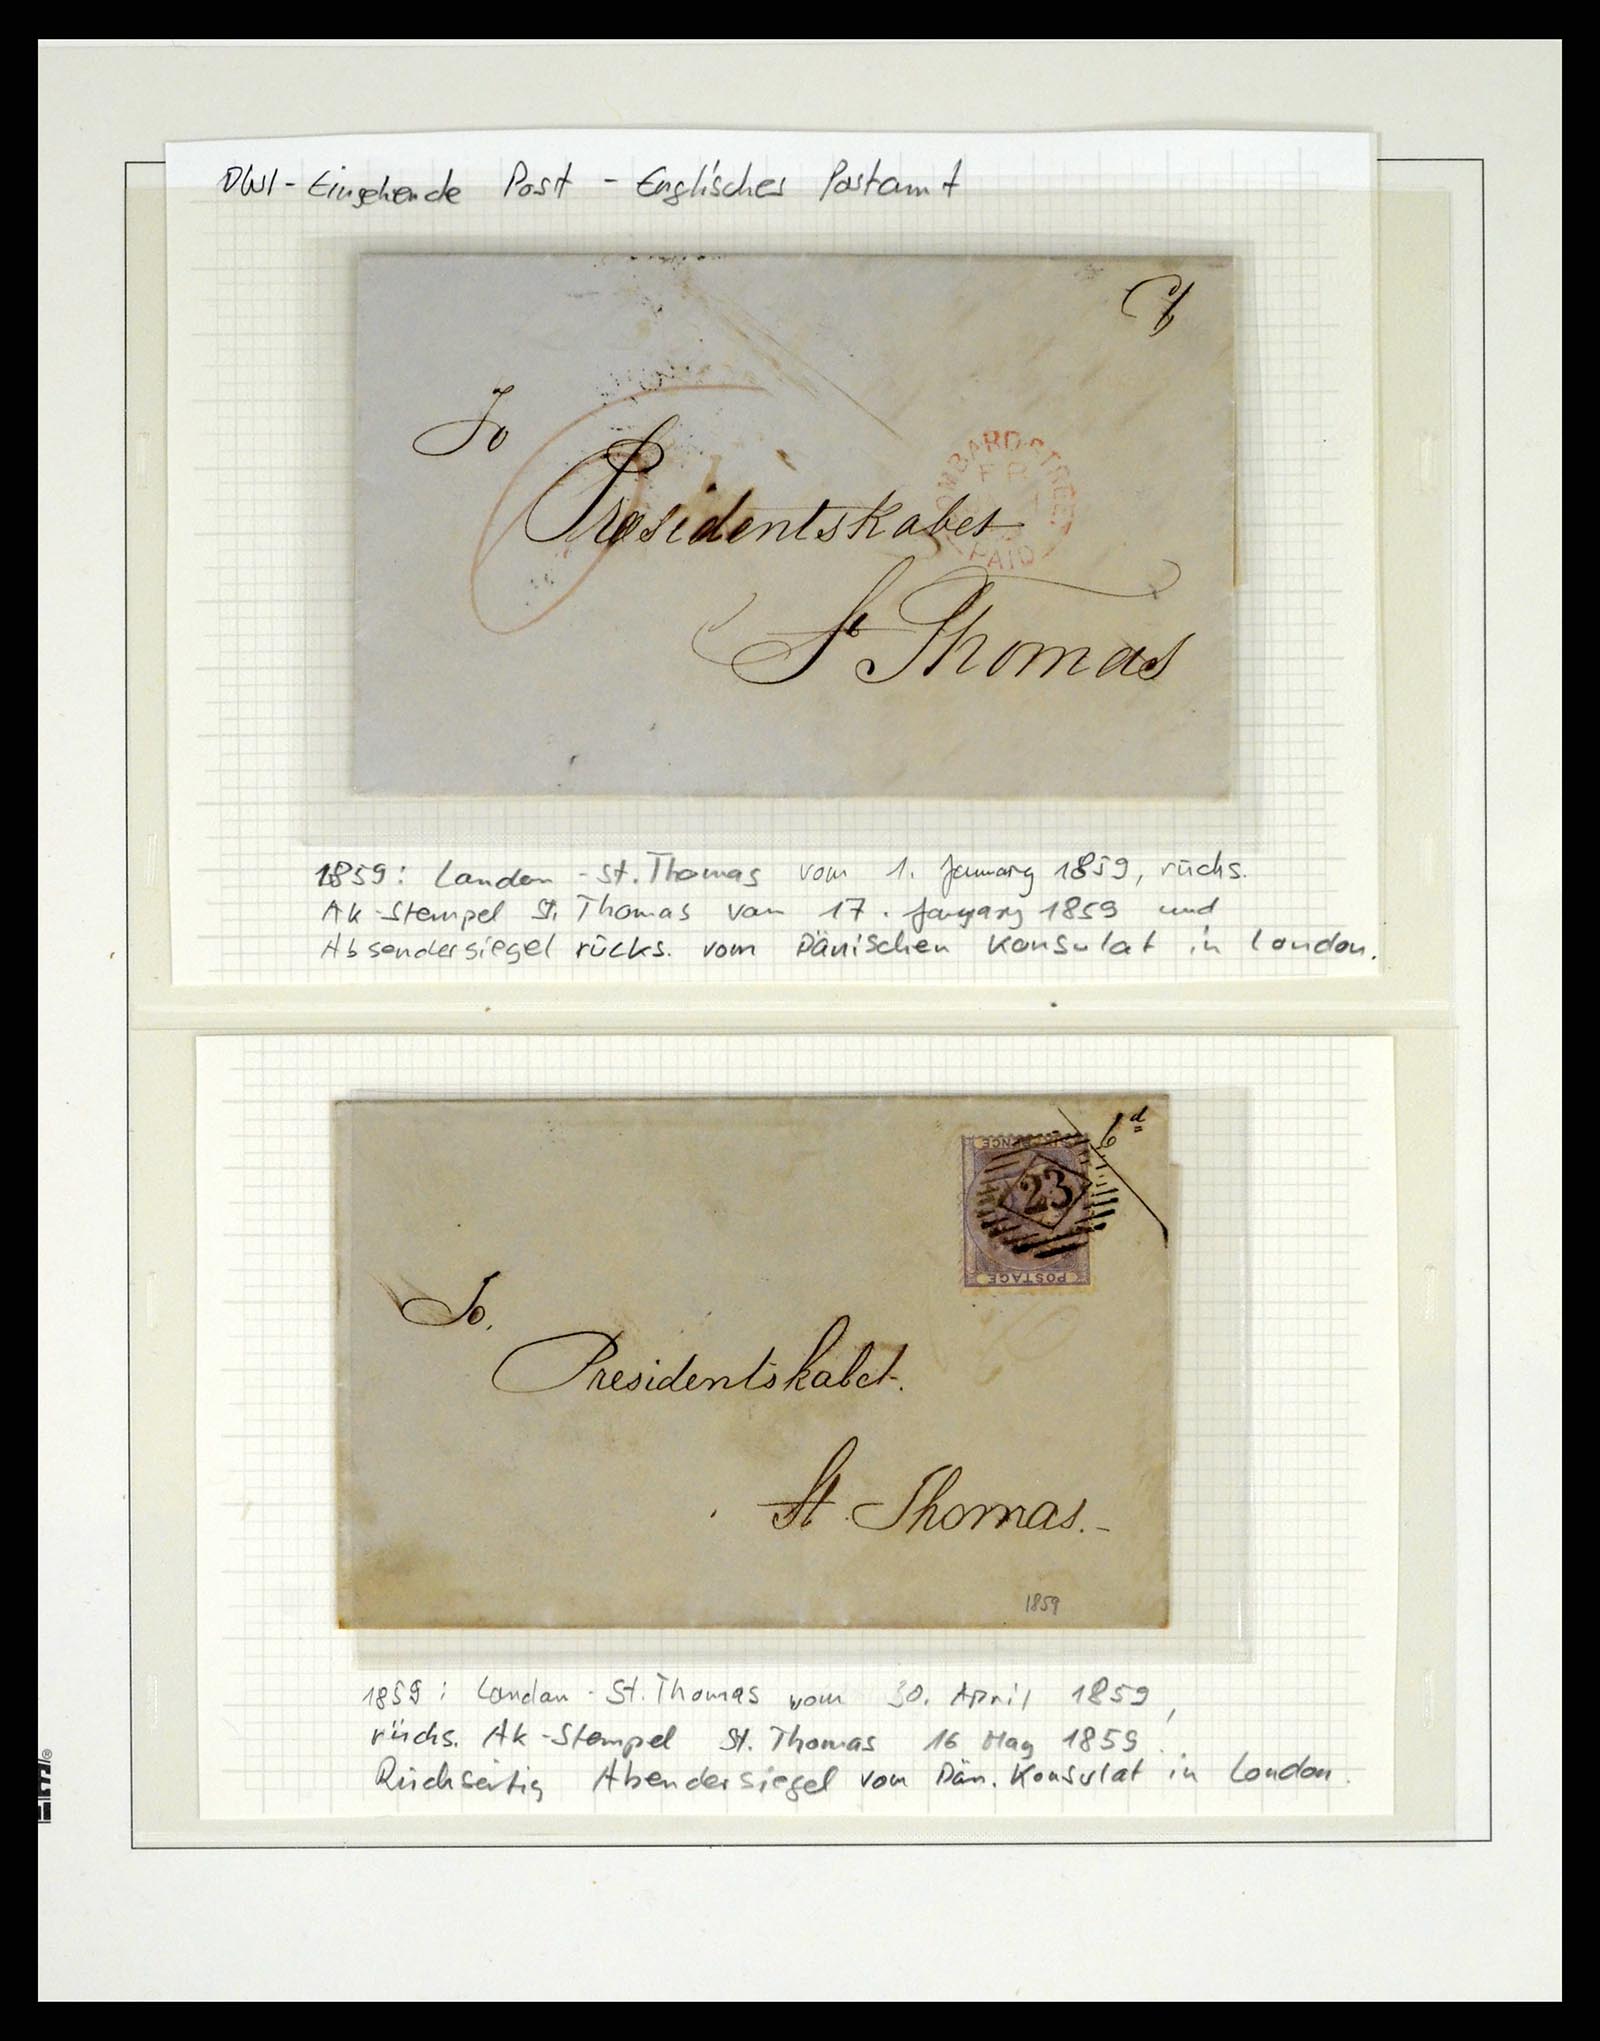 DWI - Eingehende Post - Englisches Postamt
To
Præsidentskabet
LOMBARD STREET
PAID
St Thomas
1859: London - St. Thomas vom 1. January 1859, rücks.
Ak-Stempel St. Thomas von 17. January 1859 und
Absendersiegel rücks. vom Dänischen Konsulat in London.
6d
SIX PENCE
23
POSTAGE
To.
Presidentskabet.
St. Thomas.-
1859
1859: London - St. Thomas vom 30. April 1859,
rücks. Ak-Stempel St. Thomas 16 May 1859.
Rückseitig Abendersiegel vom Dän. Konsulat in London.